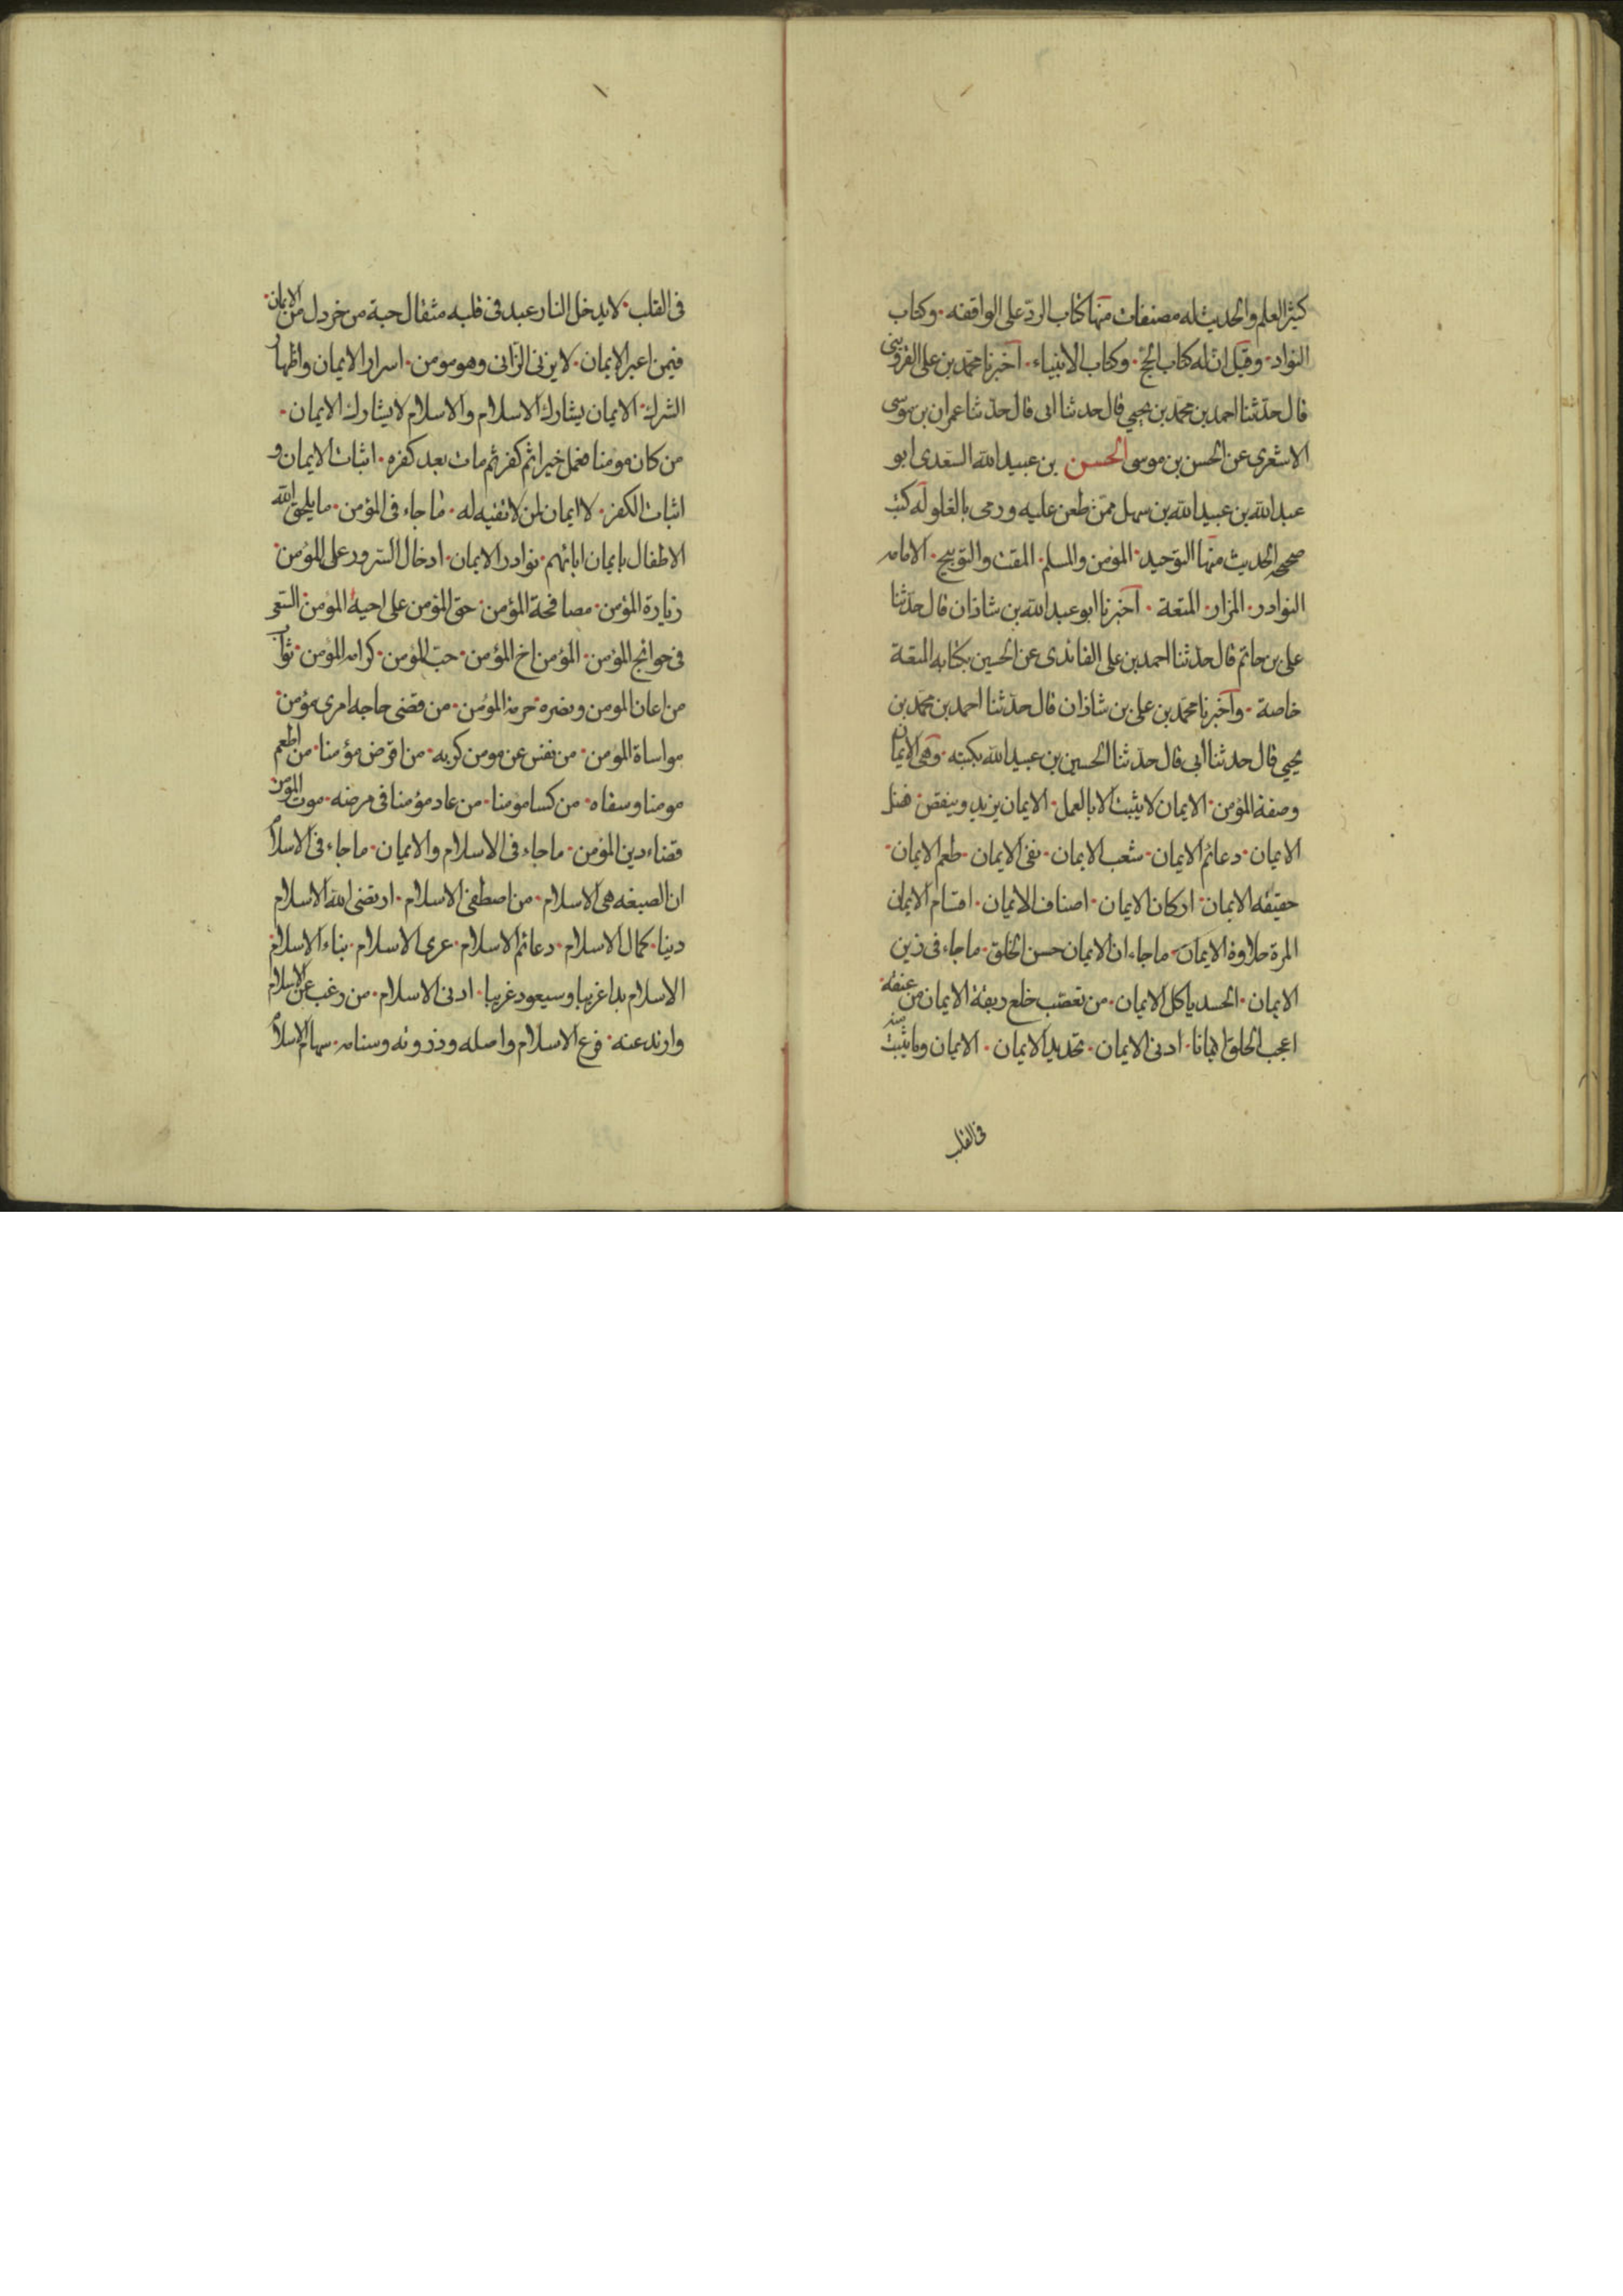 كثير العلم والحديث له مصنفات منها كتاب الرد على الواقفه · وكتاب
النوادر · وقيل ان له كتاب الحج · وكتاب الانبياء · آخبرنا محمد بن على القزوينى
قال حدثنا احمد بن محمد بن يحيي قال حدثنا ابى قال حدثنا عمران بن موسى
الاشعرى عن الحسن بن موسى الحسين بن عبيد الله السعدى ابو
عبد الله بن عبيد الله بن سهل ممن طعن عليه ورمى بالغلو له كتب
صحيح الحديث منها التوحيد · المؤمن والمسلم · المقت والتوبيخ · الامامه
النوادر · المزار · المتعة · آخبرنا ابو عبد الله بن شاذان قال حدثنا
على بن حاتم قال حدثنا احمد بن على الفائدى عن الحسين بكتابه المتعة
خاصة · وآخبرنا محمد بن على بن شاذان قال حدثنا احمد بن محمد بن
يحيي قال حدثنا ابى قال حدثنا الحسين بن عبيد الله بكتبه · وهى الايمان
وصفة المؤمن · الايمان لا يثبت الا بالعمل · الايمان يزيد وينقص · فضل
الايمان · دعائم الايمان · شعب الايمان · نفى الايمان · طعم الايمان ·
حقيقه الايمان · اركان الايمان · اصناف الايمان · اقسام الايمان
المرة حلاوة الايمان · ماجاء ان الايمان حسن الخلق · ماجاء فى زين
الايمان · الحسد ياكل الايمان · من تعصب خلع ربقة الايمان من عنقه ·
اعجب الخلق ايمانا · ادنى الايمان · تحديد الايمان · الايمان وما يثبت منه
فى القلب
فى القلب · لا يدخل النار عبد فى قلبه مثقال حبة من خردل من الايمان ·
فيمن اعير الايمان · لا يزنى الزانى وهو مومن · اسرار الايمان واظهار
الشرك · الايمان يشارك الاسلام والاسلام لا يشارك الايمان ·
من كان مومنا فعمل خيرا ثم كفر ثم مات بعد كفره · اثبات الايمان و
اثبات الكفر · لا ايمان لمن لا تقيه له · ما جاء فى المؤمن · ما يلحق الله
الاطفال بايمان ابائهم · نوادر الايمان · ادخال السرور على المؤمن ·
زيارة المؤمن · مصافحة المؤمن · حق المؤمن على اخيه المؤمن · السعى
فى حوائج المؤمن · المؤمن اخ المؤمن · حب المؤمن · كرامه المؤمن · ثواب
من اعان المومن ونصره · حرمة المؤمن · من قضى حاجه امرى مؤمن ·
مواساة المؤمن · من نفس عن مومن كربه · من اقرض مؤمنا · من اطعم
مومنا وسقاه · من كسا مومنا · من عاد مؤمنا فى مرضه · موت المؤمن
قضاء دين المؤمن · ماجاء فى الاسلام والايمان · ماجاء فى الاسلام
ان الصبغه هى الاسلام · من اصطفى الاسلام · ارتضى الله الاسلام
دينا · كمال الاسلام · دعائم الاسلام · عرى الاسلام · بناء الاسلام ·
الاسلام بدا غريبا وسيعود غريبا · ادنى الاسلام · من رغب عن الاسلام
وارتد عنه · فرع الاسلام واصله وذروته وسنامه · سهام الاسلام